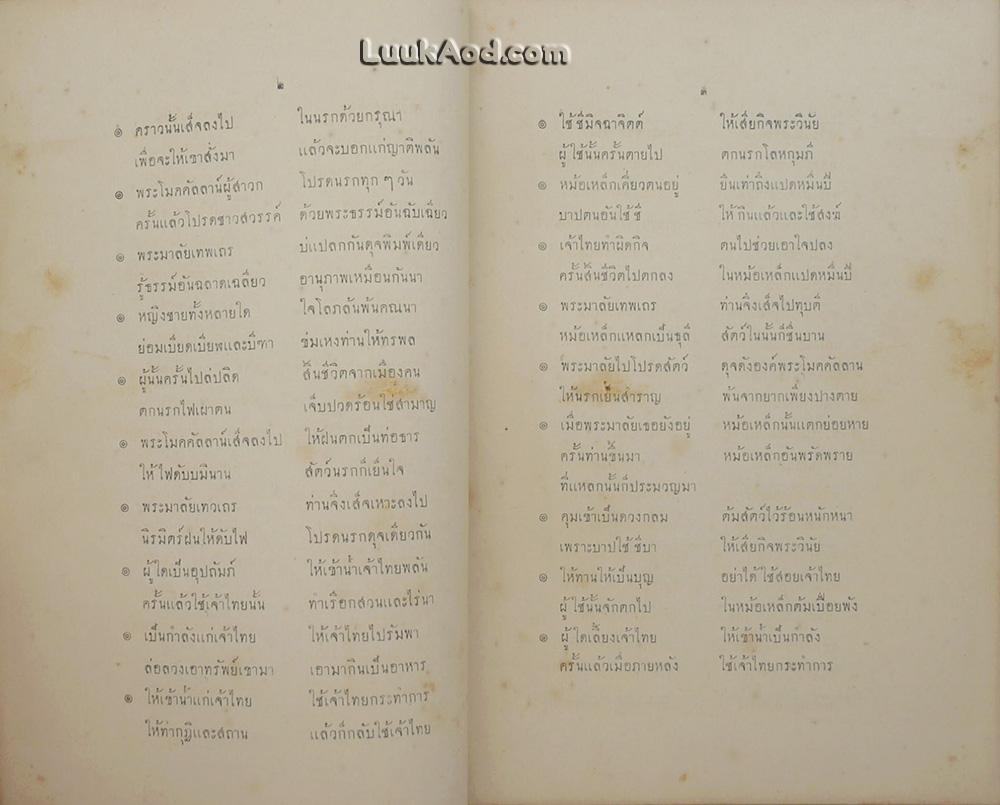 LuukAod.com
๒
๏ คราวนั้นเส็จลงไป ในนรกด้วยกรุณา
เพื่อจะให้เขาสั่งมา แล้วจะบอกแก่ญาติพลัน
๏ พระโมคคัลลาน์ผู้สาวก โปรดนรกทุก ๆ วัน
ครั้นแล้วโปรดชาวสวรรค์ ด้วยพระธรรม์อันฉับเฉี่ยว
๏ พระมาลัยเทพเถร บ่แปลกกันดุจพิมพ์เดียว
รู้ธรรม์อันฉลาดเฉลียว อานุภาพเหมือนกันนา
๏ หญิงชายทั้งหลายใด ใจโลภล้นพ้นคณนา
ย่อมเบียดเบียพและบีฑา ข่มเหงท่านให้ทรพล
๏ ผู้นั้นครั้นไปล่ปลิด สิ้นชีวิตจากเมืองคน
ตกนรกไฟเผาตน เจ็บปวดร้อนใช่สามาญ
๏ พระโมคคัลลาน์เส็จลงไป ให้ฝนตกเป็นท่อธาร
ให้ไฟดับบมีนาน สัตว์นรกก็เย็นใจ
๏ พระมาลัยเทวเถร ท่านจึ่งเส็จเหาะลงไป
นิรมิตร์ฝนให้ดับไฟ โปรดนรกดุจเดียวกัน
๏ ผู้ใดเป็นอุปถัมภ์ ให้เข้าน้ำเจ้าไทยพลัน
ครั้นแล้วใช้เจ้าไทยนั้น ทำเรือกสวนและไร่นา
๏ เป็นกำลังแก่เจ้าไทย ให้เจ้าไทยไปรัมพา
ล่อลวงเอาทรัพย์เขามา เอามากินเป็นอาหาร
๏ ให้เข้าน้ำแก่เจ้าไทย ใช้เจ้าไทยกระทำการ
ให้ทำกุฎีและสถาน แล้วก็กลับใช้เจ้าไทย
๓
๏ ใช้ชีมิจฉาจิตต์ ให้เสียกิจพระวินัย
ผู้ใช้นั้นครั้นตายไป ตกนรกโลหกุมภี
๏ หม้อเหล็กเคี่ยวตนอยู่ ยืนเท่าถึงแปดหมื่นปี
บาปตนอันใช้ชี ให้กินแล้วและใช้สงฆ์
๏ เจ้าไทยทำผิดกิจ ตนไปช่วยเอาใจปลง
ครั้นสิ้นชีวิตไปตกลง ในหม้อเหล็กแปดหมื่นปี
๏ พระมาลัยเทพเถร ท่านจึ่งเส็จไปทุบตี
หม้อเหล็กแหลกเป็นธุลี สัตว์ในนั้นก็ชื่นบาน
๏ พระมาลัยไปโปรดสัตว์ ดุจดังองค์พระโมคคัลลาน
ให้นรกเย็นสำราญ พ้นจากยากเพียงปางตาย
๏ เมื่อพระมาลัยเธอยังอยู่ หม้อเหล็กนั้นแตกย่อยหาย
ครั้นท่านขึ้นมา หม้อเหล็กอันพรัดพราย
ที่แหลกนั้นก็ประมวญมา
๏ คุมเข้าเป็นดวงกลม ต้มสัตว์ไว้ร้อนหนักหนา
เพราะบาปใช้ชีบา ให้เสียกิจพระวินัย
๏ ให้ทานให้เป็นบุญ อย่าได้ใช้สอยเจ้าไทย
ผู้ใช้นั้นจักตกไป ในหม้อเหล็กต้มเปื่อยพัง
๏ ผู้ใดเลี้ยงเจ้าไทย ให้เข้าน้ำเป็นกำลัง
ครั้นแล้วเมื่อภายหลัง ใช้เจ้าไทยกระทำการ